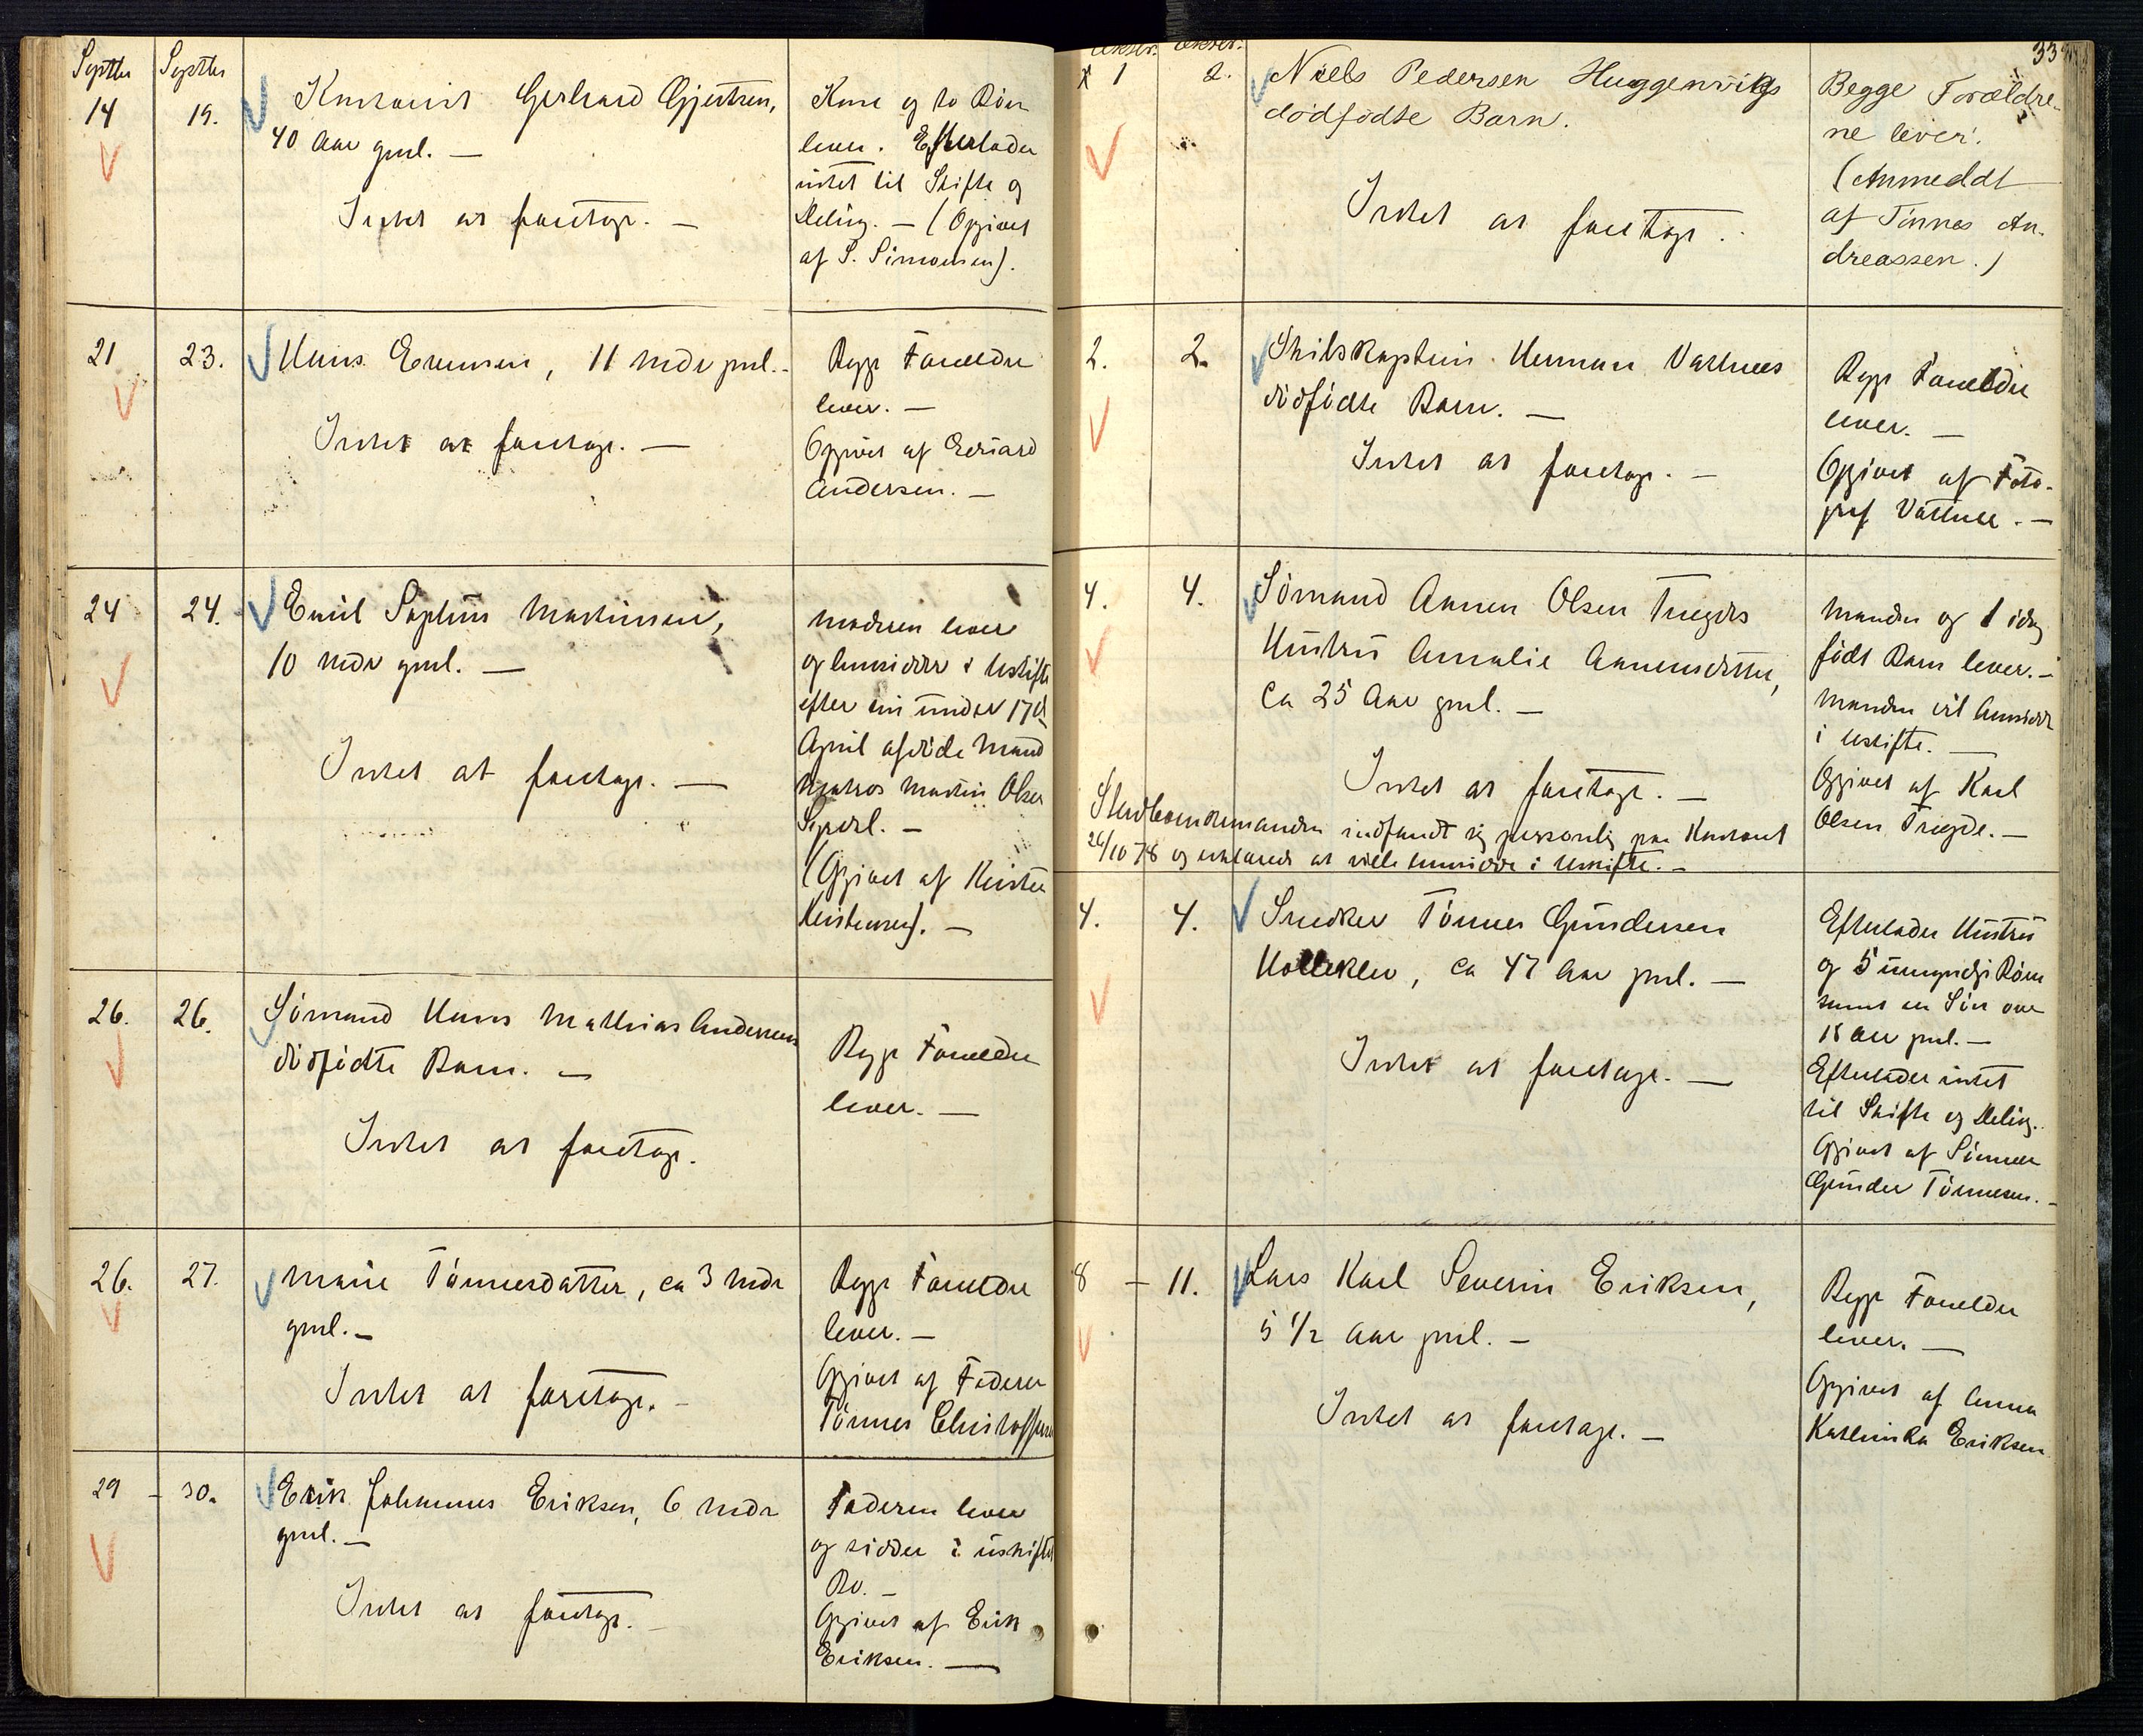 Septbr Septbr
14 19. Gerhard Gjertsen,
40 Aar gml. —
Intet at foretage. —
Kone og to Børn
lever. Efterlader
intet til Skifte og
Deling. — (Opgivet
af S. Simonsen).
21 23. Hans Evensen, 11 Mdr gml. -
Intet at foretage. —
Begge Forældre
lever. —
Opgivet af Edvard
Andersen. —
24 24. Emil Sophus Martinsen,
10 Mdr gml. —
Intet at foretage. —
Moderen lever
og hensidder i Uskifte
efter sin under 17de
April afdøde Mand
Matros Martin Olsen
(Opgivet af Kirsten
Kirstensen). —
26. 26. Sømand Hans Mathias Andersens
dødfødte Barn. —
Intet at foretage.
Begge Forældre
lever. —
26. 27. Marie Tønnesdatter, ca 3 Mdr
gml. —
Intet at foretage. -
Begge Forældre
lever. —
Opgivet af Faderen
Tønnes Christoffersen
29 - 30. Erik Johannes Eriksen, 6 Mdr
gml. —
Intet at foretage. -
Faderen lever
og sidder i uskiftet
Bo. —
Opgivet af Erik
Eriksen. —
33
Oktbr. Oktbr.
1 2. Niels Pedersen Huggenviks
dødfødte Barn.
Intet at foretage.
Begge Forældre-
ne lever.
(Anmeldt
af Tønnes An-
dreassen.)
2. 2. Skibskaptein Herman Vatnees
dødfødte Barn. —
Intet at foretage. —
Begge Forældre
lever. —
Opgivet af Foto-
graf Vatnee. —
4. 4. Sømand Aanen Olsen Tregdes
Hustru Amalie Aanensdatter,
ca 25 Aar gml. —
Intet at foretage. —
Manden og 1 idag
født Barn lever. -
Manden vil hensidde
i Uskifte. —
Opgivet af Karl
Olsen Tregde. —
indfandt sig personlig paa Kontoret
26/10 78 og erklæred at ville hensidde i Uskifte. —
4. 4. Snedker Tønnes Gundersen
Holleklev, ca 47 Aar gml. —
Intet at foretage. —
Efterlader Hustru
og 5 umyndige Børn
samt en Søn over
18 Aar gml. —
Efterlader intet
til Skifte og Deling.
Opgivet af Sønnen
Gunder Tønnesen. -
8 - 11. Lars Karl Severin Eriksen,
5 1/2 Aar gml. —
Intet at foretage. —
Begge Forældre
lever. —
Opgivet af Anna
Kathinka Eriksen